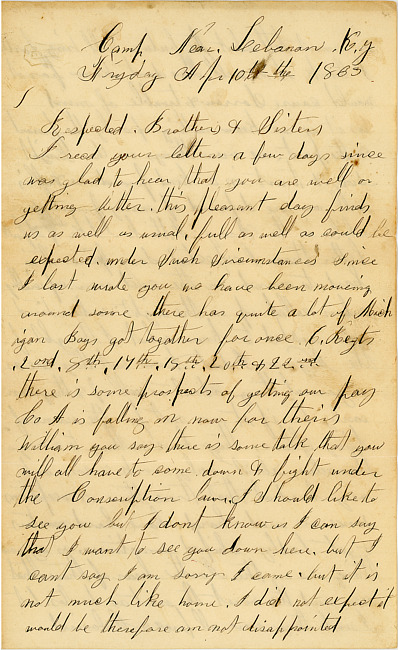 Camp Near Lebanon, Ky
Fryday Apr 10th 1863
Respected Brothers & Sisters
I recd your letters a few days since
was glad to hear that you are well or
getting better. this pleasant day finds
us as well as usual, full as well as could be
expected under Such Circumstances Since
I last wrote you we have been moveing
around some there has quite a lot of Mich
igan Boys got together for once 6 Regts
2ond, 8th, 17th, 18th, 20th & 22nd
there is some prospects of getting our pay
Co A is falling in now for theirs
William you say there is some talk that you
will all have to come down & fight under
the Conscription law, I should like to
see you but I dont know as I can say
that I want to see you down here, but I
cant say I am sorry I came. but it is
not much like home, I did not expect it
would be therefore am not disappointed